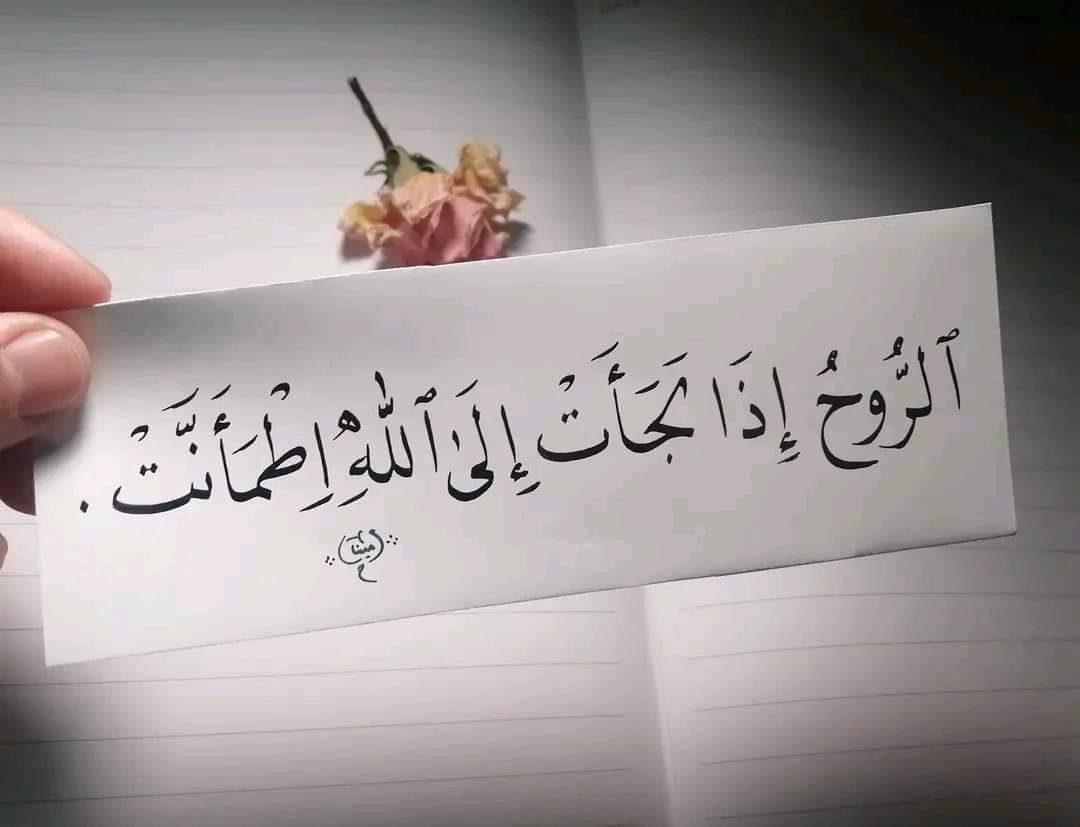 ٱلرُّوحُ إِذَا لَجَأَتْ إِلَىٰ ٱللّٰهِ اِطْمَأَنَّتْ.